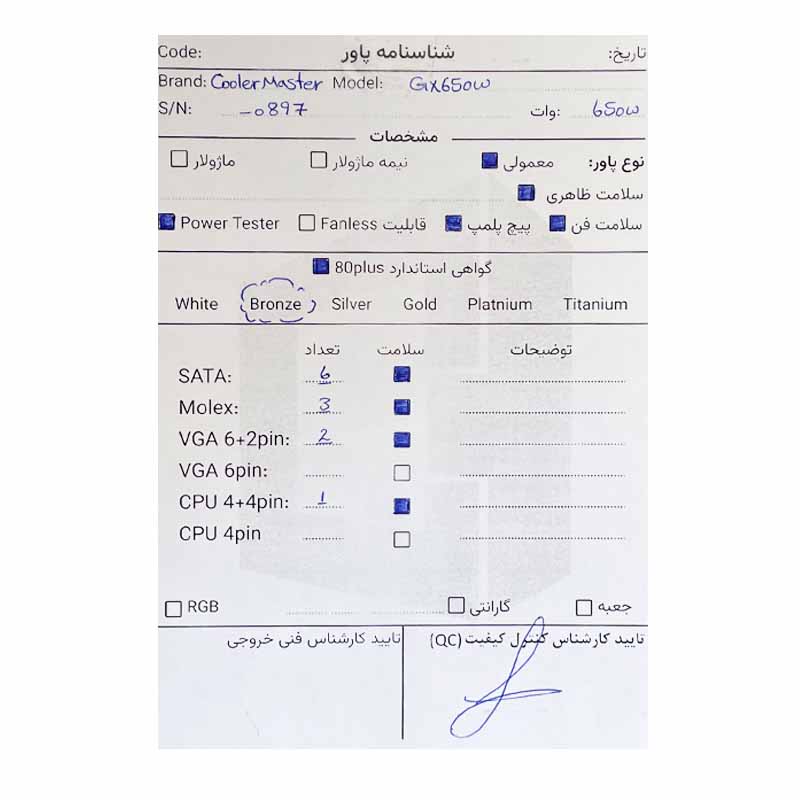 Code: شناسنامه پاور تاریخ:
Brand: CoolerMaster Model: GX650W
S/N: -0897 وات: 650W
مشخصات
نوع پاور: معمولی نیمه ماژولار ماژولار
سلامت ظاهری
سلامت فن پیچ پلمپ قابلیت Fanless Power Tester
گواهی استاندارد 80plus
White Bronze Silver Gold Platnium Titanium
تعداد سلامت توضیحات
SATA: 6
Molex: 3
VGA 6+2pin: 2
VGA 6pin:
CPU 4+4pin: 1
CPU 4pin
RGB گارانتی جعبه
تایید کارشناس کنترل کیفیت (QC) تایید کارشناس فنی خروجی